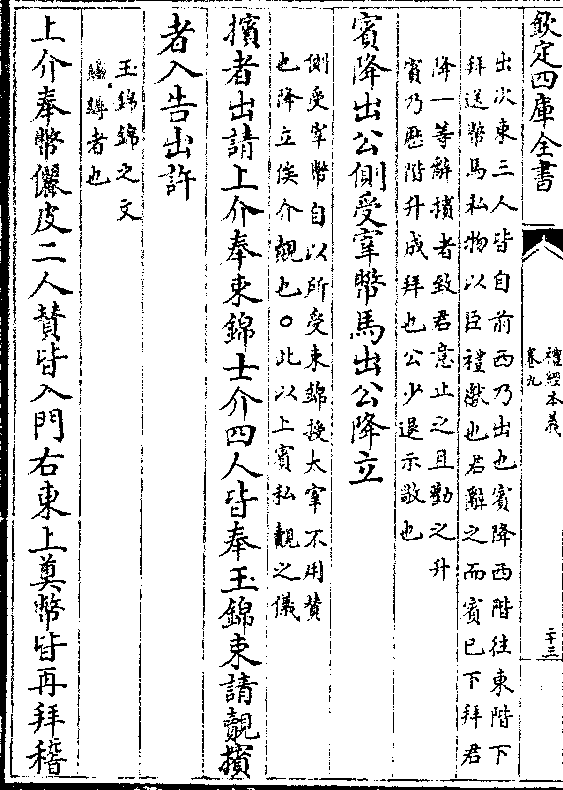 欽定四庫全書
禮經本義
卷九
二十三
出次東三人皆自前西乃出也賓降西階往東階下
拜送幣馬私物以臣禮獻也君辭之而賓已下拜君
降一等辭擯者致君意止之且勸之升
賓乃歷階升成拜也公少退示敬也
賓降出公側受宰幣馬出公降立
側受宰幣自以所受束錦授大宰不用贊
也降立俟介覿也○此以上賓私覿之儀
擯者出請上介奉束錦士介四人皆奉玉錦束請覿擯
者入告出許
玉錦錦之文
纎縟者也
上介奉幣儷皮二人贊皆入門右東上奠幣皆再拜稽